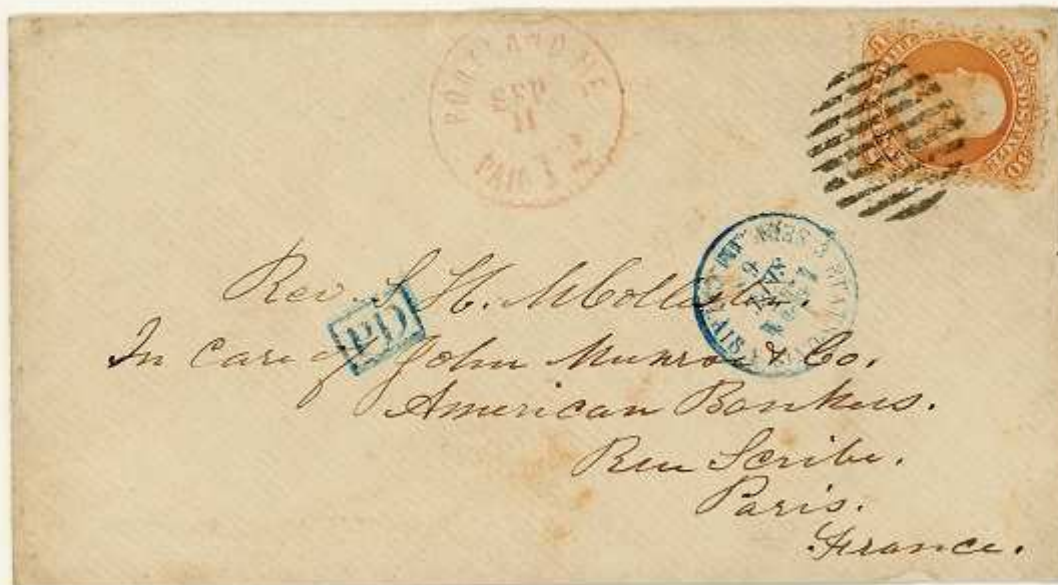 PORTLAND ME
SEP
11
PAID
30
Rev. S. H. McCollester.
PD
In care of John Munroe & Co.
CALAIS
American Bankers.
Rue Scribe.
Paris.
France.